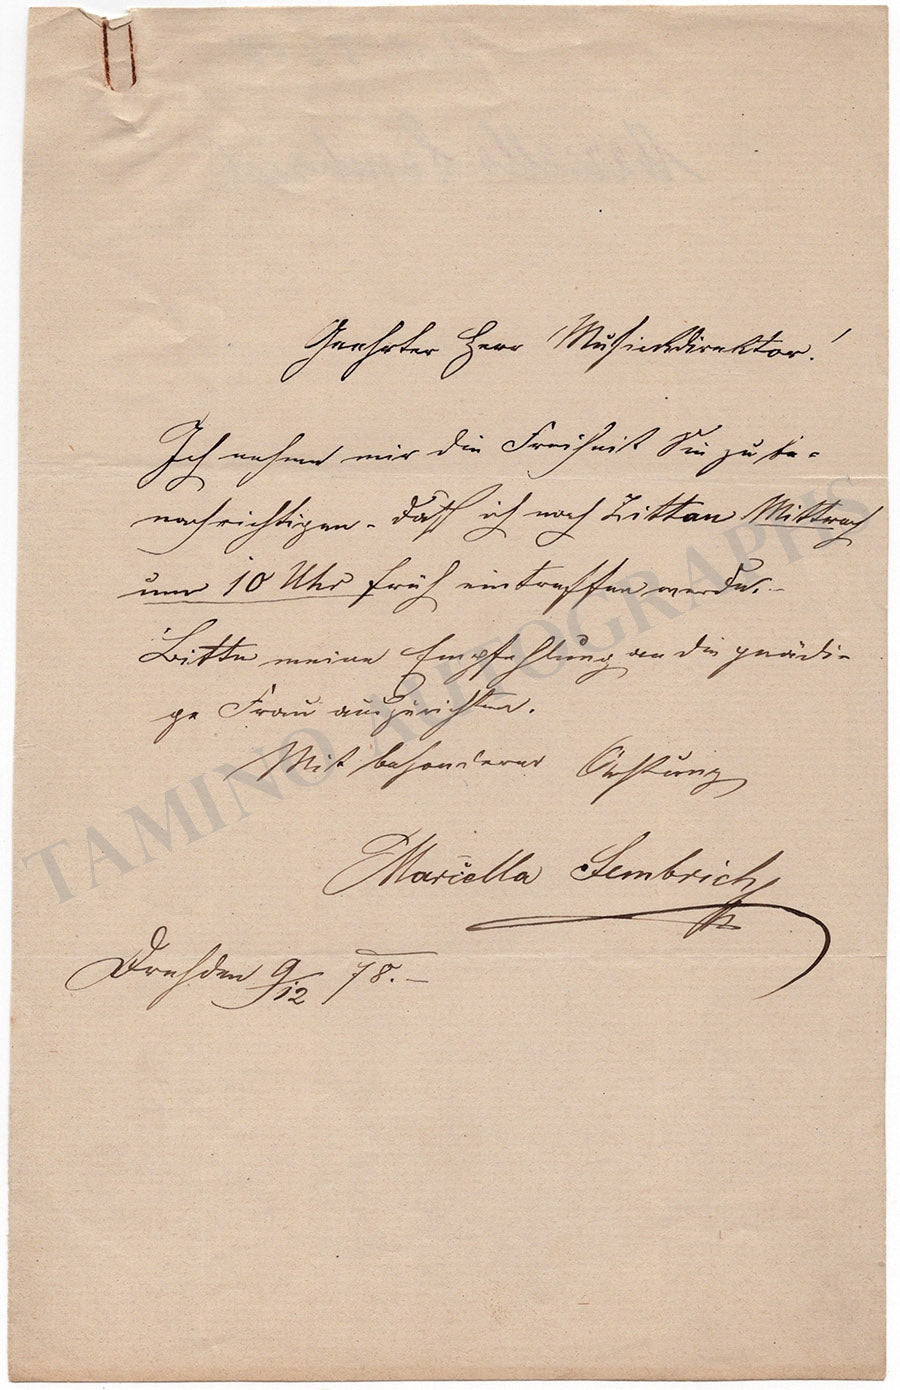 Geehrter Herr Musickdirektor!
Ich nehme mir die Freiheit Sie zu be-
nachrichtigen - daß ich nach Zittau Mittwoch
um 10 Uhr früh eintreffen werde. -
Bitte meine Empfehlung an die gnädi-
ge Frau auszurichten.
Mit besonderer Achtung
Marcella Sembrich
Dresden 9/12 78. -
TAMINO AUTOGRAPHS